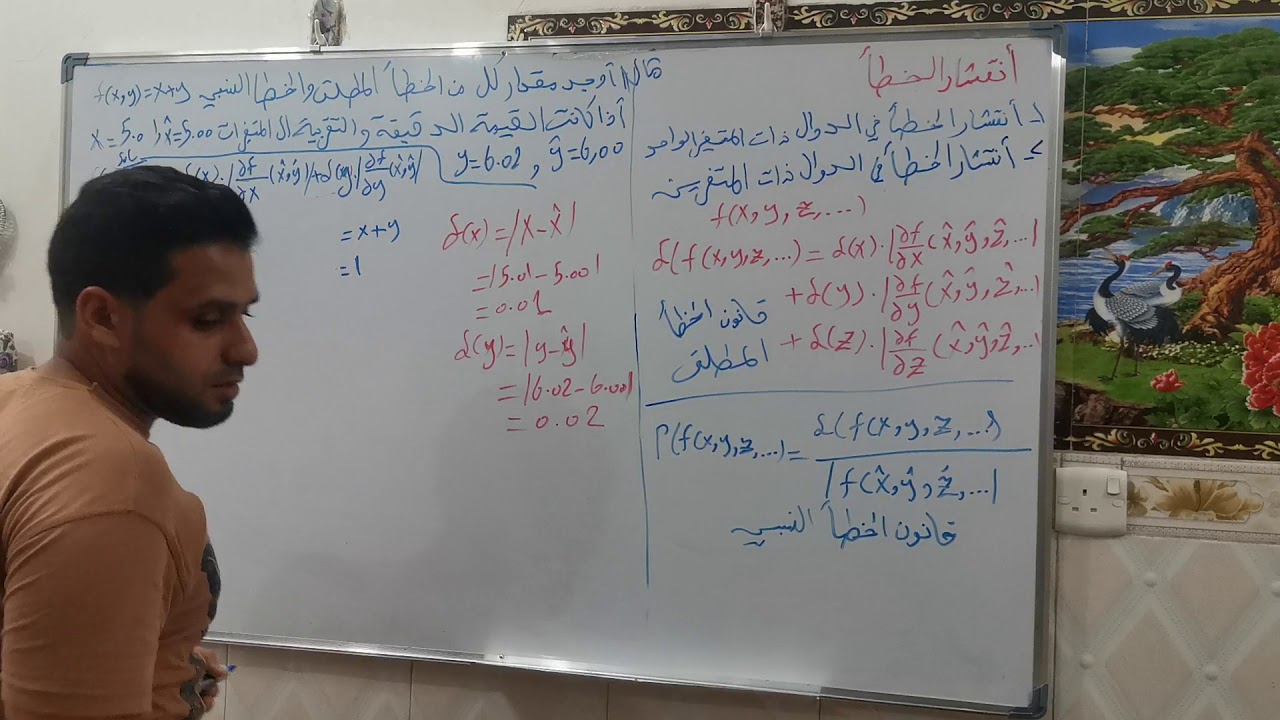 أنتشار الخطأ
١- أنتشار الخطأ في الدوال ذات المتغير الواحد
٢- أنتشار الخطأ في الدوال ذات المتغيرين
f(x,y,z,...)
δ(f(x,y,z,...) = δ(x)·|∂f/∂x(x̂,ŷ,ẑ,...|
+δ(y)·|∂f/∂y(x̂,ŷ,ẑ,...|
+δ(z)·|∂f/∂z(x̂,ŷ,ẑ,...|
قانون الخطأ
المطلق
ρ(f(x,y,z,...) = δ(f(x,y,z,...) / |f(x̂,ŷ,ẑ,...|
قانون الخطأ النسبي
أوجد مقدار كل من الخطأ المطلق والخطأ النسبي f(x,y)=x+y
أذا كانت القيمة الدقيقة والتقريبية ال المتغيرات x=5.01, x̂=5.00
y=6.02, ŷ=6,00
(x)·|∂f/∂x(x̂,ŷ)|+δ(y)·|∂f/∂y(x̂,ŷ)|
=x+y
=1
δ(x)=|x-x̂|
=|5.01-5.00|
=0.01
δ(y)=|y-ŷ|
=|6.02-6.00|
=0.02